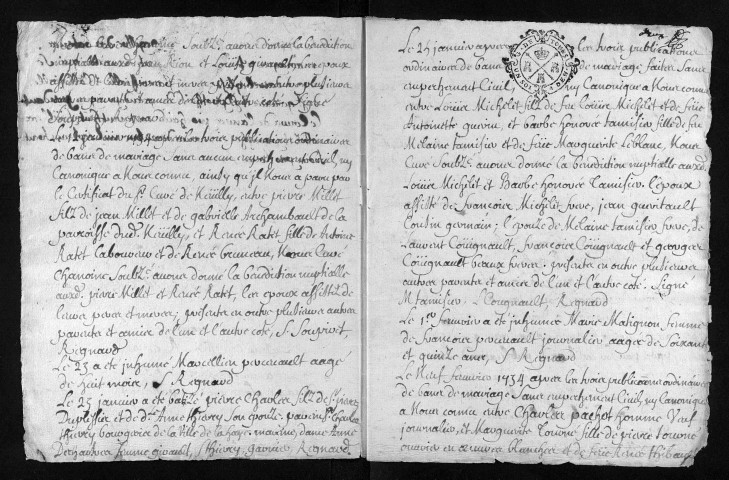 Soubz.é avons donné la bénédiction
Louis
assisté
plusieurs
parents et amis de l'un et l'autre coté Signé
1734 après les trois publications ordinaires
de bans de mariage sans aucun empêchement civil, ny
Canonique a Nous connu, ainsy qu'il Nous a paru par
le Certificat du Sr Curé de Neüilly, entre pierre Millet
fils de jean Millet et de gabrielle Archambault de la
paroisse dud. Neüilly, et Renée Ratet fille de Antoine
Ratet laboureur et de Renée bruneau, Nous Curé
Chanoine Soubz.é avons donné la bénédiction nuptialle
auxd. pierre Millet et Renée Ratet, les epoux assistés de
leurs peres et meres; présents en outre plusieurs autres
parents et amis de l'un et l'autre coté, S.
Regnard
Le 23 a eté inhumé Marcellin perrinault aagé
de huit mois, Regnard
Le 25 janvier a eté batizé pierre Charles fils de pierre
Duplessier et de d.e Anne thierry son epouse, parain Sr Charles
thierry bourgeois de la Ville de la haye, maraine, dame Anne
Deshautes femme girault, S. thierry, garnier, Regnard
Le 25 janvier après les trois publications
ordinaires de bans de mariage faites sans
empeschement Civil, ny Canonique a Nous connu
entre Loüis Michelet fils de feu Loüis Michelet et de feüe
Antoinette guerin et barbe honorée tamisier fille de feu
Melaine tamisier et de feüe Marguerite Leblanc, Nous
Curé Soubz.é avons donné la bénédiction nuptialle auxd.
Loüis Michelet et Barbe honorée tamisier, l'epoux
assisté de françois Michelet frere, jean guritault
Cousin germain; l'epouse de Melaine tamisier frere, de
Laurent Coüignault, françois Coüignault et george
Coüignault beaux freres. présents en outre plusieurs
autres parents et amis de l'un et l'autre coté. Signé
M tamisier. L Couignault, Regnard
Le 1er fevrier a eté inhumée Marie Matignon femme
de françois perrinault journalier, aagée de soixante
et quinze ans, S. Regnard
Le Neuf fevrier 1734 après les trois publications ordinaires
de bans de mariage sans empeschement Civil, ny Canonique
a Nous connu entre Charles pachot homme Veuf
journalier, et Marguerite tourne fille de pierre tourne
ouvrier en oeuvres blanches et de feüe Renée thibault